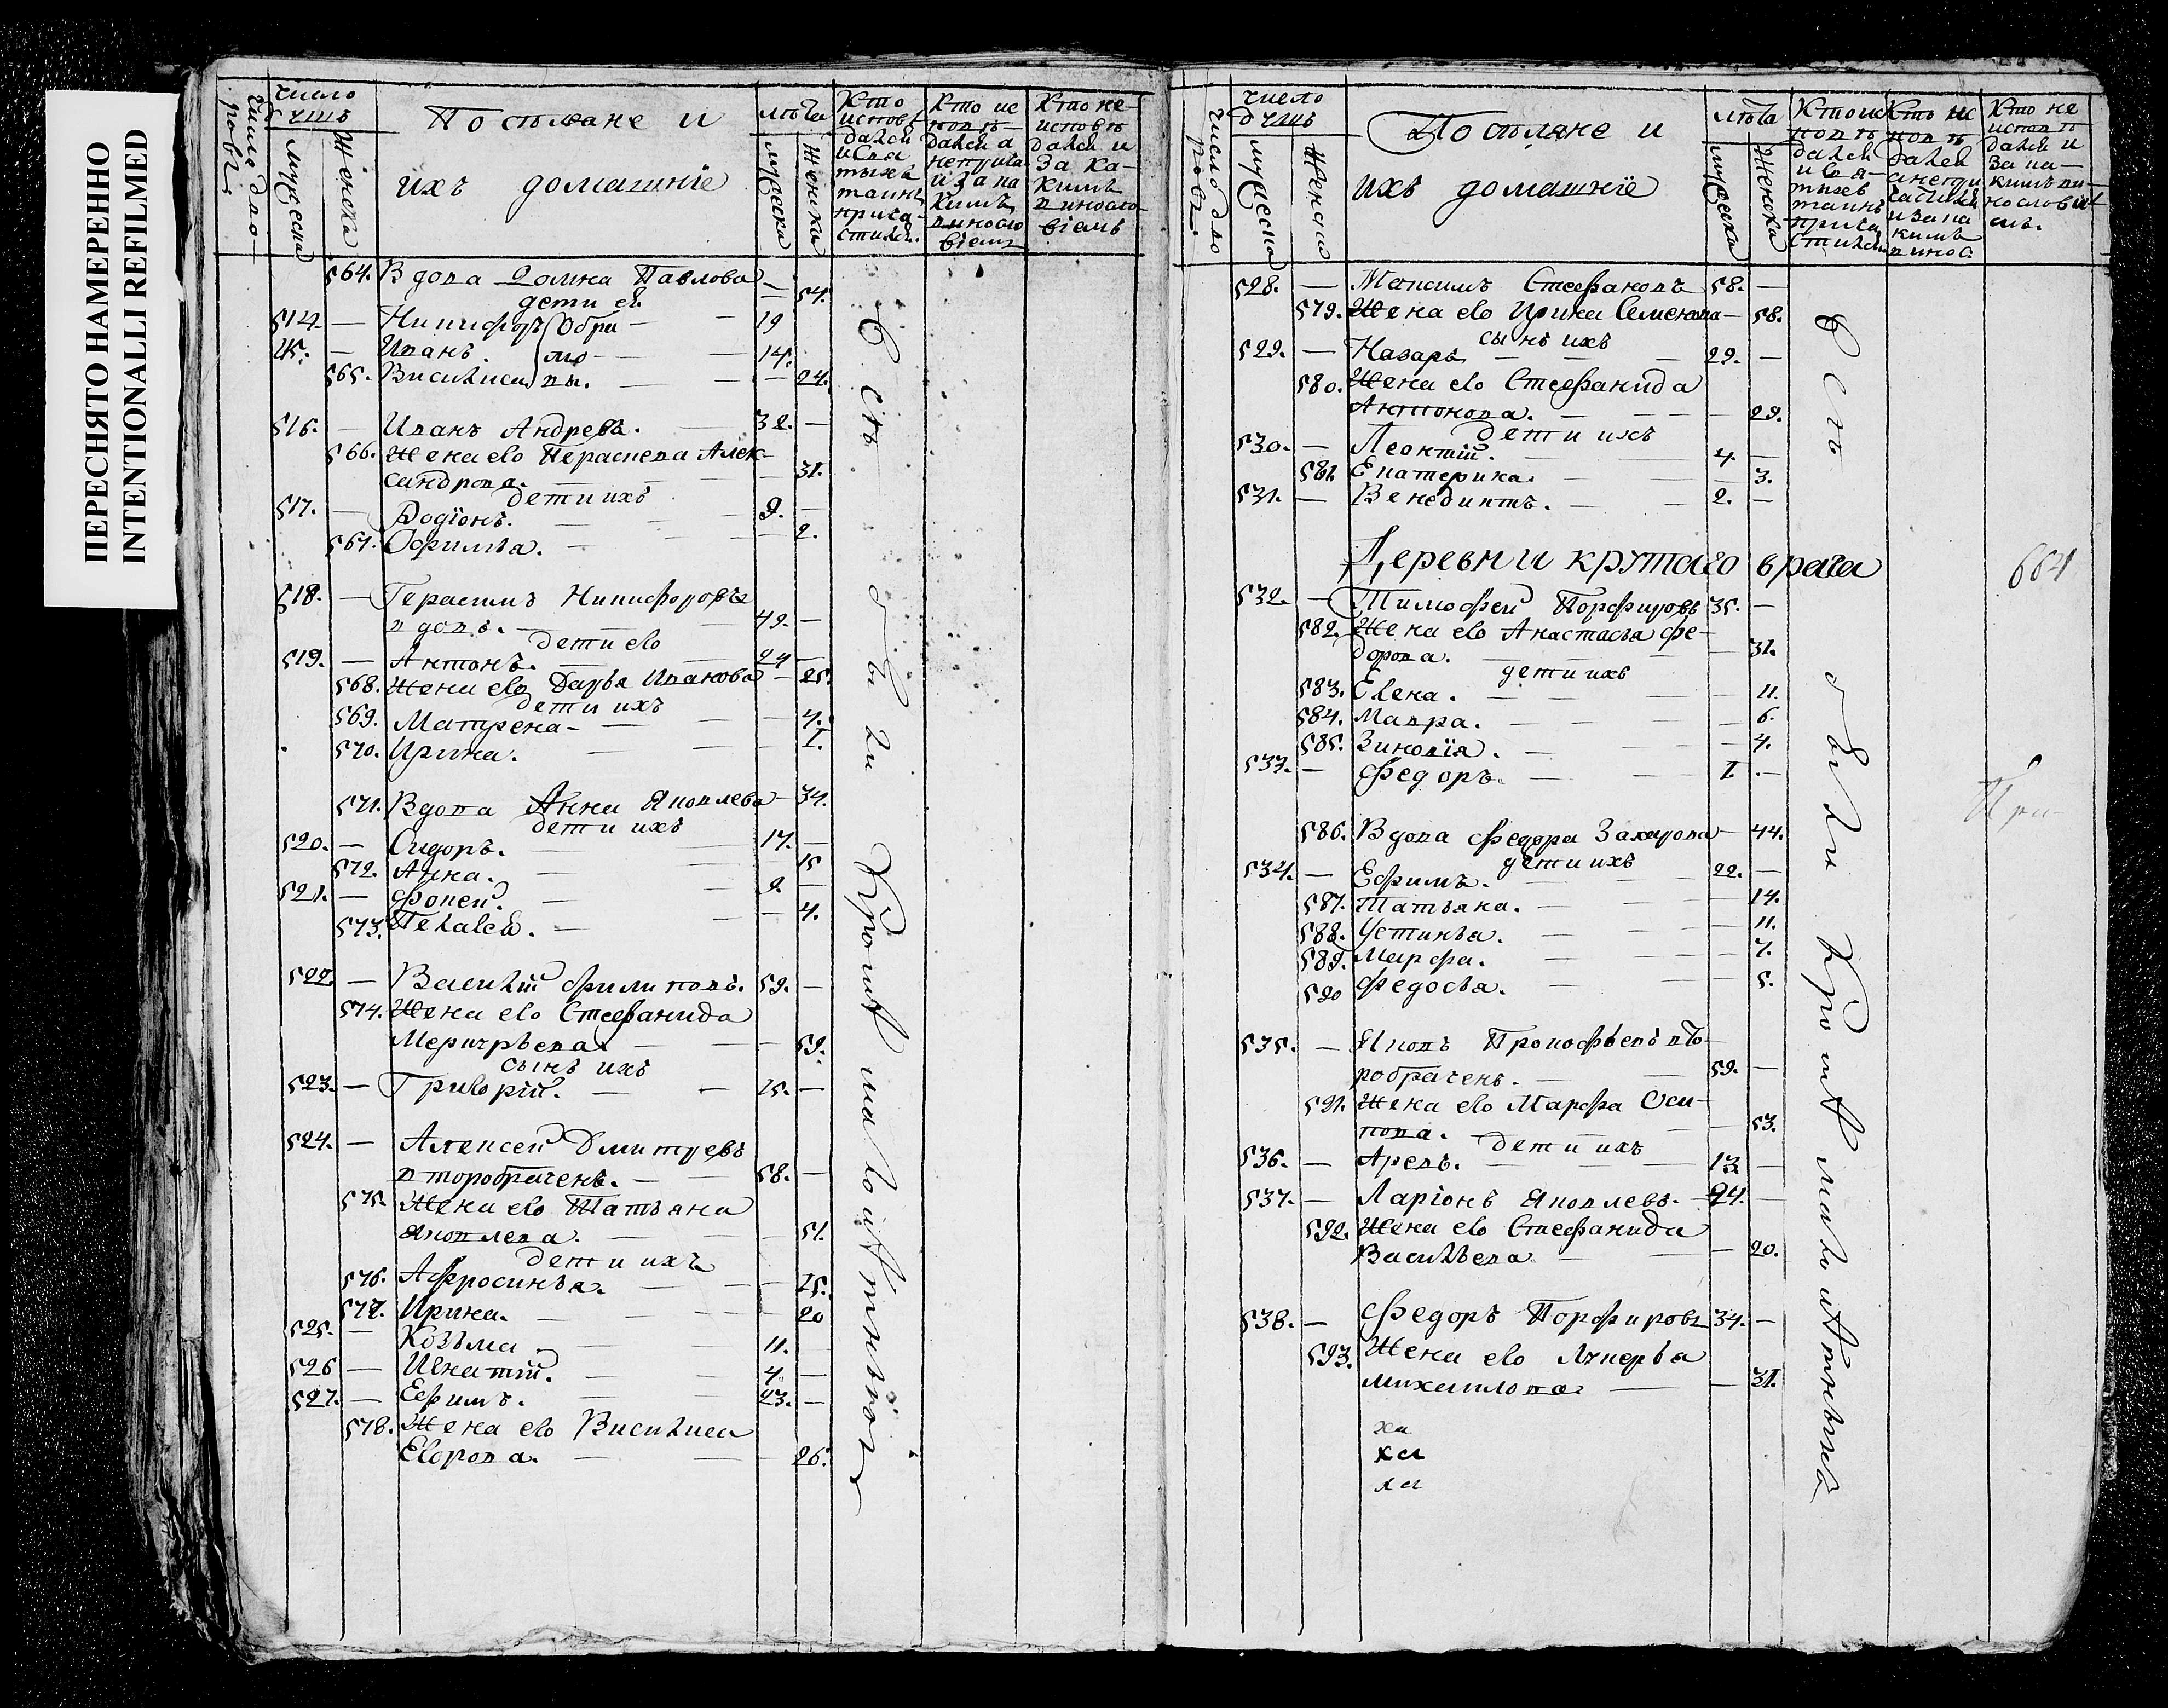 ПЕРЕСНЯТО НАМЕРЕННО
INTENTIONALLI REFILMED
Число дво
ровъ.
число
душъ
мужеска
Женска
Посѣляне и
ихъ домашнїе
лѣта
мужеска
Женска
Кто
исповѣ
дался
и свя
тыхъ
таинъ
прича-
стился.
Кто ис
повѣ-
дался а
неприча
и за ка
кимъ
виносло
вїемъ
Кто не-
исповѣ
дался и
за ка-
кимъ
виносло
вїемъ
564. Вдова Домна Павлова — 54.
дети ея
514. — Никифоръ Абра — 19
15. — Иванъ. мо — 14.
565. Василиса вы. — 24.
516. — Иванъ Андреевъ. 32. —
566. Жена его Параскева Алек-
сандрова. — 31.
дети ихъ
517. — Родїонъ. — 9. —
567. Офимья. — 2.
518. — Герасимъ Никифоровъ
вдовъ. — 49. —
дети его
519. — Антонъ. — 24 —
568. Жена его Дарья Иванова — 25.
дети ихъ
569. Матрена — 4.
570. Ирина. — 1.
571. Вдова Анна Яковлева — 34.
дети ихъ
520. — Сидоръ. 17. —
572. Анна. — 15
521. — Фокей. — 9. —
573. Пелагея. — 4.
522. — Василїй Филиповъ. 59. —
574. Жена его Стефанида
Меркурьева. — 59.
сынъ ихъ
523. — Григорїй. — 25. —
524. — Алексей Дмитревъ
второбрачень. — 58. —
575. Жена его Татьяна
Яковлева. — 51.
дети ихъ
576. Афросинья. — 25.
577. Ирина. — 20
525. — Козьма — 11.
526 — Игнатїй. — 4. —
527. — Ефимъ. 23. —
578. Жена его Василиса
Егорова. — 26.
Число дво
ровъ.
число
душъ
мужеска
Женска
Посѣляне и
ихъ домашнїе
лѣта
мужеска
Женска
Кто ис
повѣ
дался
и свя-
тыхъ
таинъ
прича
стился
Кто ис
повѣ
дался
а непри
частился
и за ка
кимъ
винос.
Кто не
исповѣ
дался и
за ка-
кимъ ви-
нословїе
емъ.
528. — Максимъ Стефановъ 58. —
579. Жена его Ирина Семенова — 58.
сынъ ихъ
529. — Назаръ — 29. —
580. Жена его Стефанида
Антонова. — 29.
дети ихъ
530. — Леонтїй. — 4. —
581. Екатерина. — 3.
531. — Венедиктъ. — 2. —
Деревни крутаго врага
532. — Тимофей Порфировъ 35. —
582. Жена его Анастасья Фе-
дорова. — 31.
дети ихъ
583. Елена. — 11.
584. Мавра. — 6.
585. Зиновїя. — 4.
533. — Федоръ. — 1. —
586. Вдова Федора Захарова — 44.
дети ихъ
534. — Ефимъ. 22. —
587. Татьяна. — 14.
588. Устинья. — 11.
589. Марфа. — 7.
590 Федосья. — 5.
535. — Яковъ Прокофьевъ вто-
робрачень. — 59. —
591. Жена его Марфа Оси-
пова. — 53.
дети ихъ
536. — Арефъ. — 13 —
537. — Ларїонъ Яковлевъ. 24. —
592. Жена его Стефанида
Васильева — 20.
538. — Федоръ Порфировъ 34. —
593. Жена его Лукерья
михаилова — 31.
ха
ха
ха
664
При